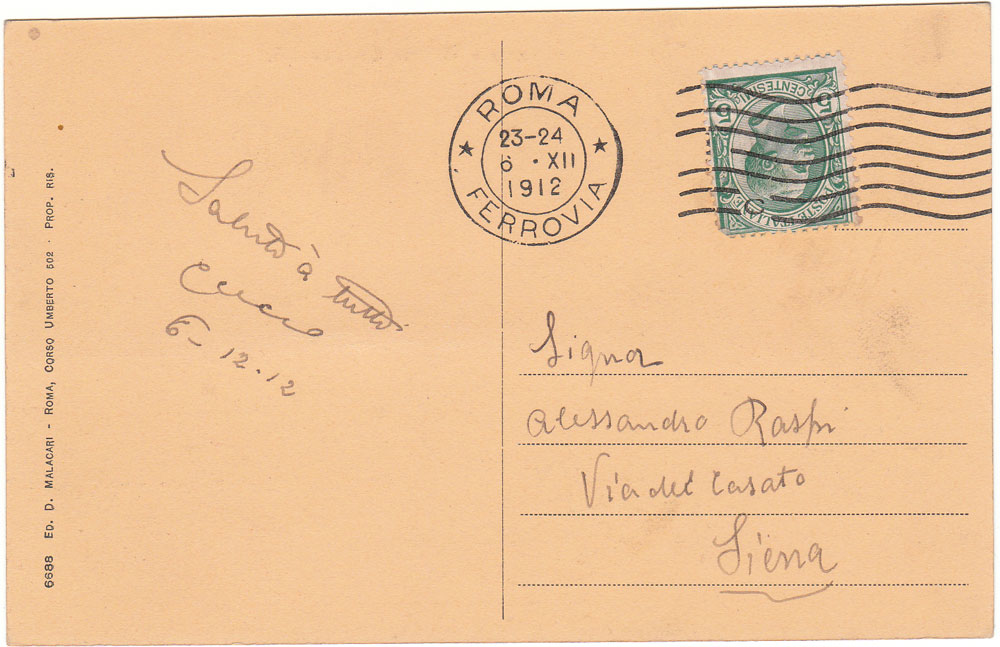 6688 ED. D. MALACARI - ROMA, CORSO UMBERTO 502 · PROP. RIS.
Saluto à tutti
6-12.12
ROMA
23-24
6 · XII
1912
FERROVIA
5 CENTESIMI 5
POSTE ITALIANE
Signor
Alessandro Raspi
Via del Casato
Siena